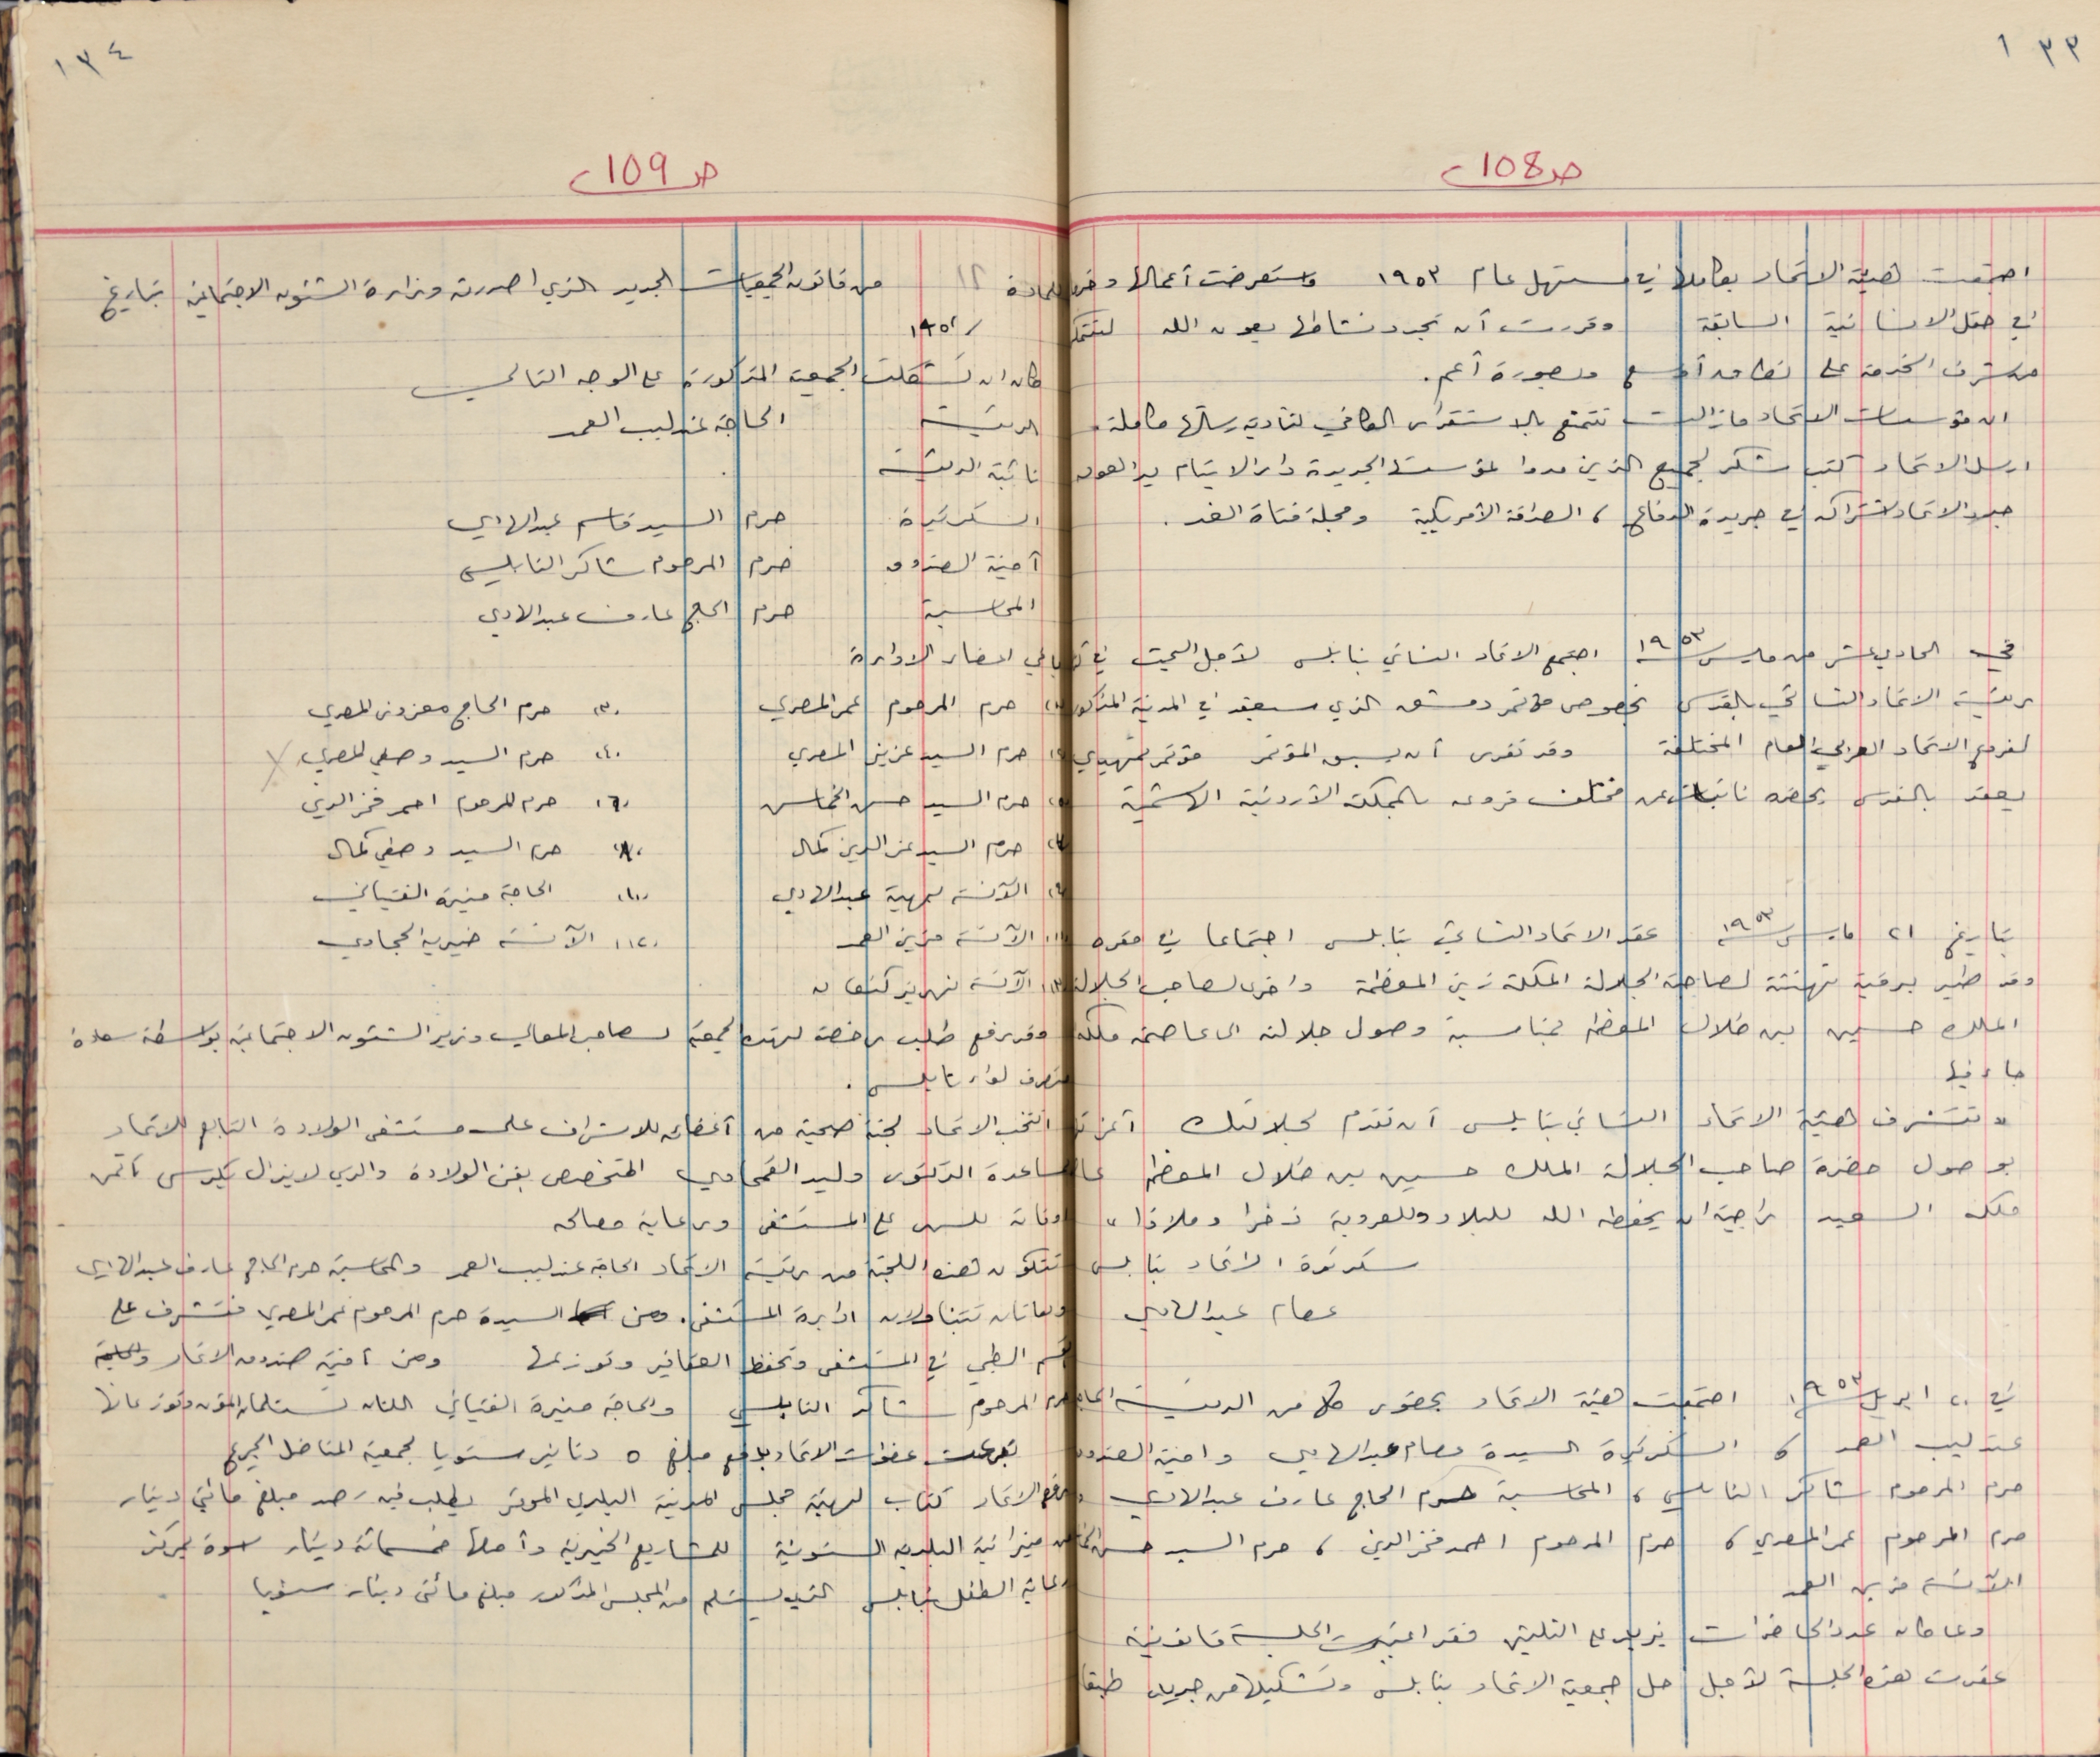 ١٣٣
ص 108
اجتمعت هيئة الاتحاد بكاملها في مستهل عام ١٩٥٣ واستعرضت أعمالها
في حقل الانسانية السابقة وقررت أن تجدد نشاطها بعون الله لتتمكن
من شرف الخدمة على نطاق أوسع وبصورة أعم.
ان مؤسسات الاتحاد ما زالت تتمتع بالاستقرار الكافي لتأدية رسالتها كاملة.
ارسل الاتحاد كتب شكر لجميع الذين مدوا لمؤسستها الجديدة دار الايتام يد العون
جدد الاتحاد اشتراكه في جريدة الدفاع ، الصداقة الأمريكية ومجلة فتاة الغد.
في الحادي عشر من مارس ١٩٥٣ اجتمع الاتحاد النسائي بنابلس لأجل البحث في
رئيسة الاتحاد النسائي بالقدس بخصوص مؤتمر دمشق الذي سيعقد في المدينة المذكورة
لفروع الاتحاد العربي العام المختلفة وقد تقرر أن يسبق المؤتمر مؤتمر تمهيدي
يعقد بالقدس يحضره نائبات عن مختلف فروعه بالمملكة الأردنية الهاشمية
بتاريخ ٢١ مارس ١٩٥٣ عقد الاتحاد النسائي بنابلس اجتماعا في مقره
وقد طير برقية تهنئة لصاحبة الجلالة الملكة زين المعظمة واخرى لصاحب الجلالة
الملك حسين بن طلال المعظم بمناسبة وصول جلالته الى عاصمة ملكه
جاء فيها
" تتشرف هيئة الاتحاد النسائي بنابلس أن تقدم لجلالتك أعز
بوصول حضرة صاحب الجلالة الملك حسين بن طلال المعظم
ملكه السعيد راجية ان يحفظه الله للبلاد وللعروبة ذخرا وملاذا "
سكرتيرة الاتحاد بنابلس
عصام عبد الهادي
في ٢٠ ابريل ١٩٥٣ اجتمعت هيئة الاتحاد بحضور كل من الرئيسة الحاجة
عندليب العمد ، السكرتيرة السيدة عصام عبد الهادي وامينة الصندوق
حرم المرحوم شاكر النابلسي ، المحاسبة حرم الحاج عارف عبد الهادي
حرم المرحوم عمر المصري ، حرم المرحوم احمد فخر الدين ، حرم السيد حسن الخماش
الآنسة مزين العمد
وبما كان عدد الحاضرات يزيد على الثلثين فقد اعتبرت الجلسة قانونية
عقدت هذه الجلسة لأجل حل جمعية الاتحاد بنابلس وتشكيلها من جديد طبقا
١٣٤
ص 109
للمادة ١٢ من قانون الجمعيات الجديد الذي اصدرته وزارة الشئون الاجتماعية بتاريخ
/ ١٩٥٢
وكان ان تشكلت الجمعية المذكورة على الوجه التالي
الرئيسة الحاجة عندليب العمد
نائبة الرئيسة .
السكرتيرة حرم السيد قاسم عبد الهادي
أمينة الصندوق حرم المرحوم شاكر النابلسي
المحاسبة حرم الحاج عارف عبد الهادي
باقي اعضاء الادارة
حرم المرحوم عمر المصري ٣. حرم الحاج معزوز المصري
حرم السيد عزيز المصري ٤. حرم السيد وصفي المصري
حرم السيد حسن الخماش ٦. حرم المرحوم احمد فخر الدين
حرم السيد عز الدين كمال ٨. حرم السيد وصفي كمال
الآنسة سهية عبد الهادي ١٠. الحاجة منيرة الفتياني
الآنسة مزين العمد ١٢. الآنسة خيرية الحجاوي
الآنسة نهريز كنعان
وقد رفع طلب رخصة لهذه الجمعية لصاحب المعالي وزير الشئون الاجتماعية بواسطة سعادة
متصرف لواء نابلس .
انتخب الاتحاد لجنة صحية من أعضائه للاشراف على مستشفى الولادة التابع للاتحاد
بمساعدة الدكتور وليد القمحاوي المتخصص بفن الولادة والذي لا يزال يكرس ثمن
أوقاته للسهر على المستشفى ورعاية مصالحه
تتكون هذه اللجنة من رئيسة الاتحاد الحاجة عندليب العمد والمحاسبة حرم الحاج عارف عبد الهادي
وهاتان تتناولان ادارة المستشفى. ومن السيدة حرم المرحوم عمر المصري فتشرف على
القسم الطبي في المستشفى وتحفظ العقاقير وتوزيعها ومن أمينة صندوق الاتحاد
حرم المرحوم شاكر النابلسي والحاجة منيرة الفتياني اللتان تستلمان المؤن وتوزعانها
تبرعت عضوات الاتحاد بدفع مبلغ ٥ دنانير سنويا لجمعية المناضل الجريح
رفع الاتحاد كتاب لهيئة مجلس المدينة البلدي الموقر يطلب فيه رصد مبلغ مائتي دينار
من ميزانية البلدية السنوية للمشاريع الخيرية وأصلها خمسمائة دينار اسوة بمركز
رعاية الطفل بنابلس الذي يستلم من المجلس المذكور مبلغ مائتي دينار سنويا